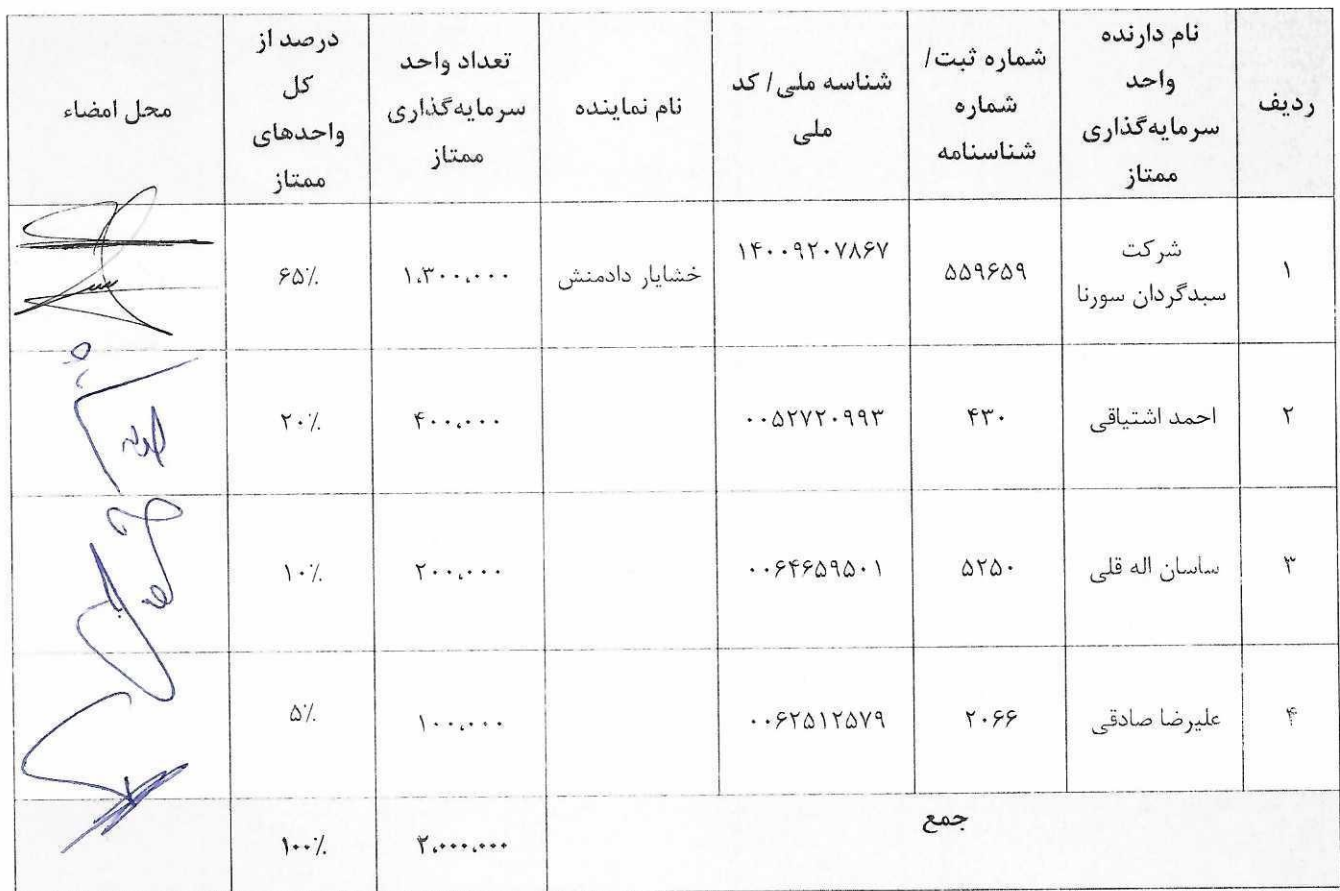 ردیف
نام دارنده
واحد
سرمایه‌گذاری
ممتاز
شماره ثبت/
شماره
شناسنامه
شناسه ملی/ کد
ملی
نام نماینده
تعداد واحد
سرمایه‌گذاری
ممتاز
درصد از
کل
واحدهای
ممتاز
محل امضاء
۱
شرکت
سبدگردان سورنا
۵۵۹۶۵۹
۱۴۰۰۹۲۰۷۸۶۷
خشایار دادمنش
۱،۳۰۰،۰۰۰
۶۵٪
۲
احمد اشتیاقی
۴۳۰
۰۰۵۲۷۲۰۹۹۳
۴۰۰،۰۰۰
۲۰٪
۳
ساسان اله قلی
۵۲۵۰
۰۰۶۴۶۵۹۵۰۱
۲۰۰،۰۰۰
۱۰٪
۴
علیرضا صادقی
۲۰۶۶
۰۰۶۲۵۱۲۵۷۹
۱۰۰،۰۰۰
۵٪
جمع
۲،۰۰۰،۰۰۰
۱۰۰٪